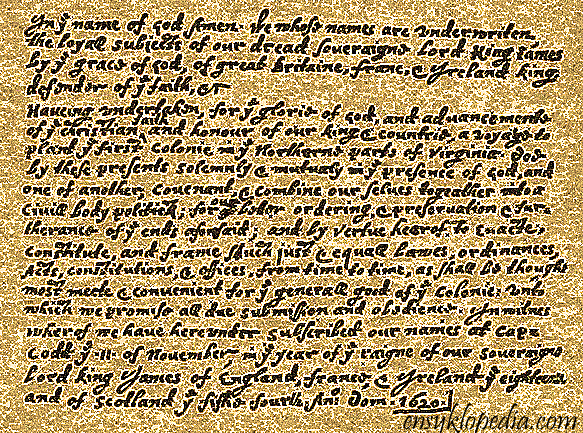 In yͤ name of God Amen. We whose names are underwriten,
the loyal subjects of our dread soveraigne Lord King James
by yͤ grace of God, of great Britaine, franc, & Ireland king,
defender of yͤ faith, &c
Haveing undertaken for yͤ glorie of God, and advancemente
of yͤ christian faith and honour of our king & countrie, a voyage to
plant yͤ first colonie in yͤ Northerne parts of Virginia. Doe
by these presents solemnly & mutualy in yͤ presence of God, and
one of another, covenant, & combine our selves togeather into a
Civill body politick; for our better ordering, & preservation & fur=
therance of yͤ ends aforesaid; and by vertue hearof to enacte,
constitute, and frame such just & equall Lawes, ordinances,
Acts, constitutions, & offices, from time to time, as shall be thought
most meete & convenient for yͤ generall good of yͤ Colonie: unto
which we promise all due submission and obedience. In witnes
wherof we have hereunder subscribed our names at Cape
Codd yͤ .11. of November, in yͤ year of yͤ raigne of our soveraigne
Lord king James of England, france & Ireland yͤ eighteenth
and of Scotland yͤ fiftie fourth. Anͦ: Dom. 1620.
ensyklopedia.com